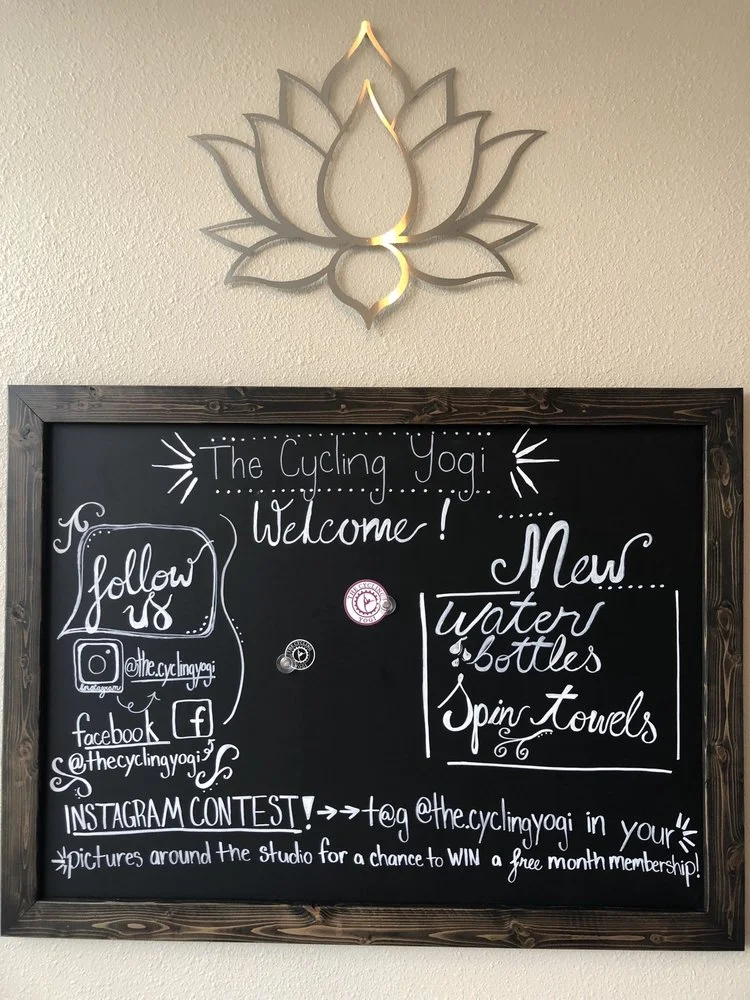 The Cycling Yogi
Welcome!
follow
us
Instagram
@the.cyclingyogi
facebook f
@thecyclingyogi
THE CYCLING
YOGI
New
water
bottles
Spin towels
INSTAGRAM CONTEST! →→ t@g @the.cyclingyogi in your
pictures around the studio for a chance to WIN a free month membership!